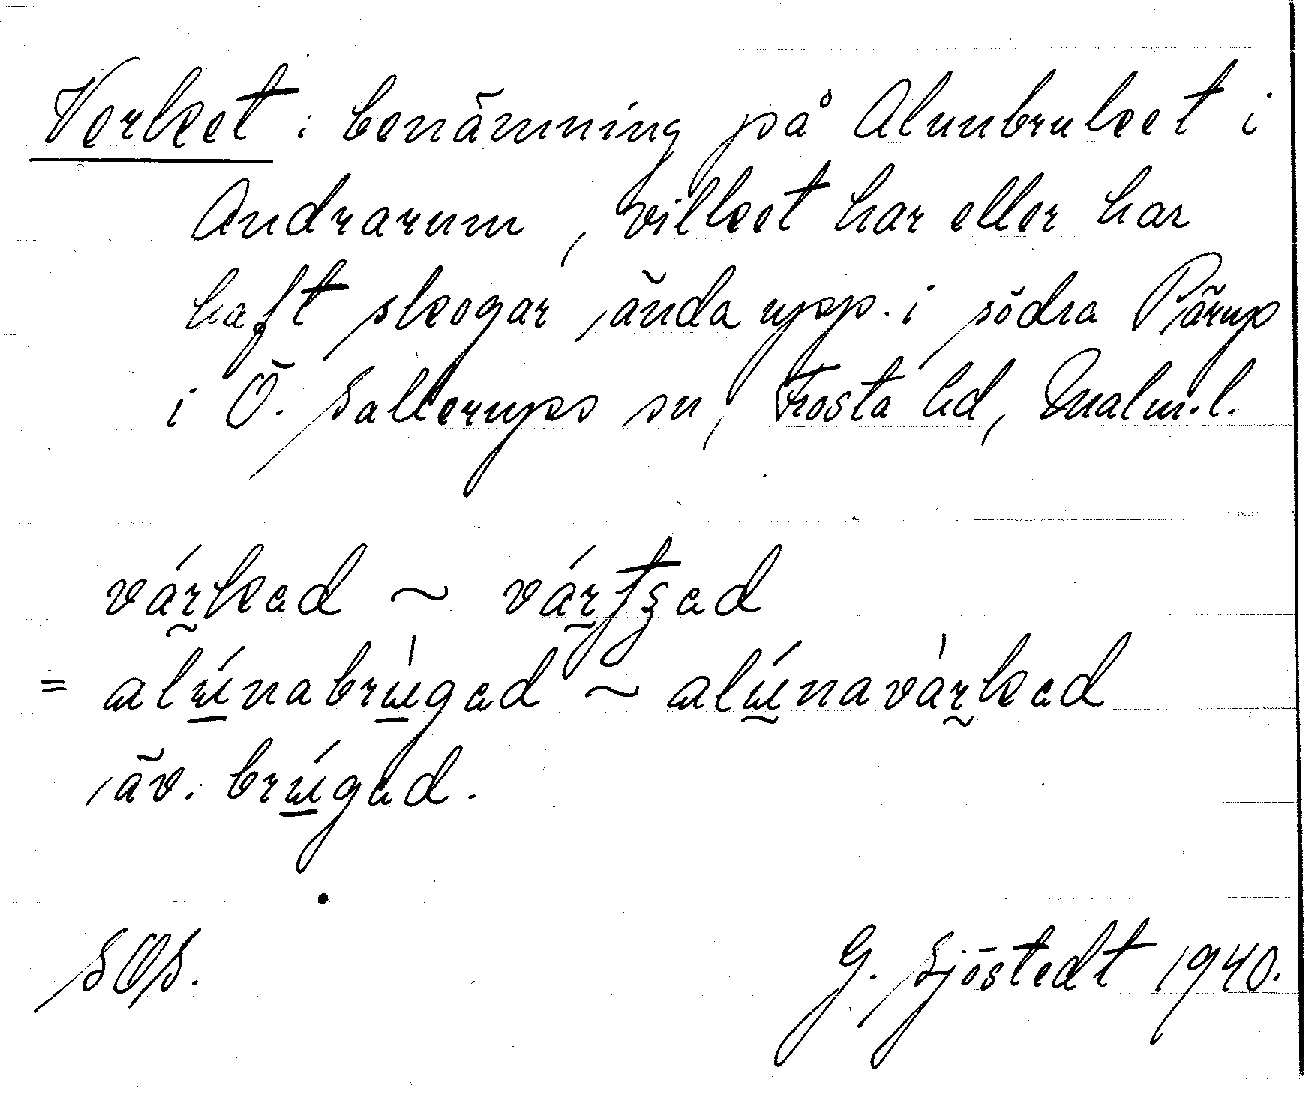 Verket : benämning på Alunbruket i
Andrarum, vilket har eller har
haft skogar ända upp i södra Pärup
i Ö. Sallerups sn, Frosta hd, Malm.l.
várkad ~ vártȿad
= alúnabrùgad ~ alúnavàrkad
äv. brúgad.
SOS.
G. Sjöstedt 1940.